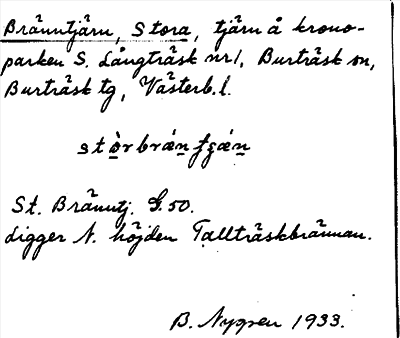 Bränntjärn, Stora, tjärn å krono-
parken S. Långträsk nr 1, Burträsk sn,
Burträsk tg, Västerb. l.
stòrbrán
St. Bränntj. G. 50.
Ligger N. höjden Tallträskbrännan.
B. Nygren 1933.